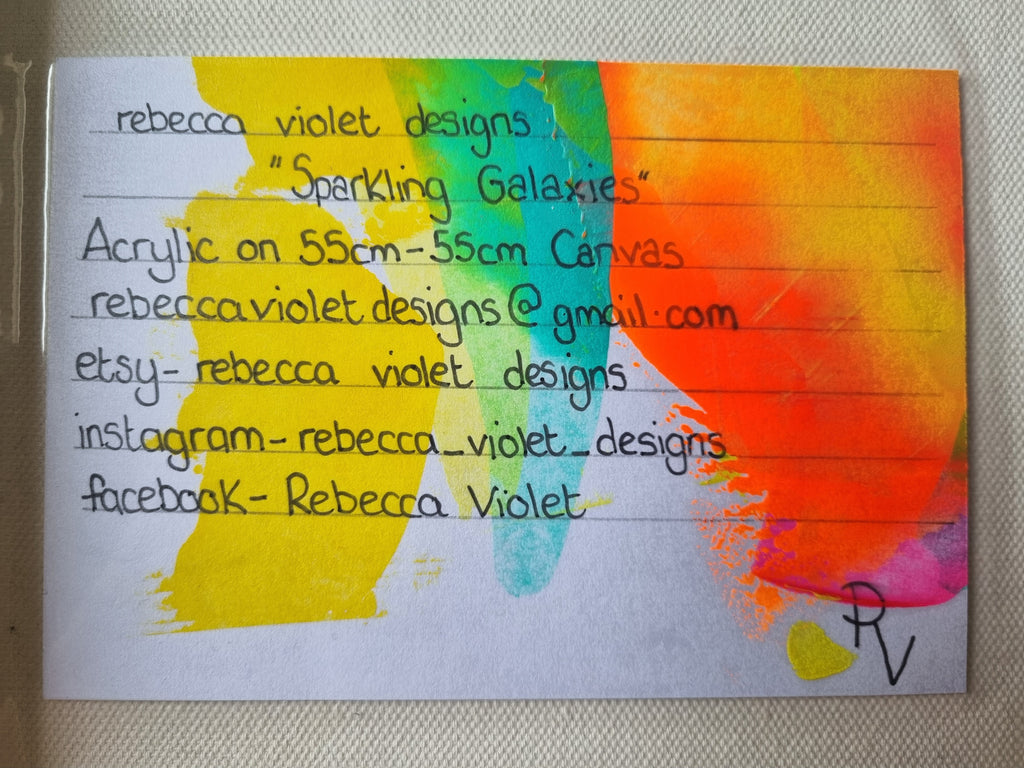 rebecca violet designs
"Sparkling Galaxies"
Acrylic on 55cm-55cm Canvas
rebeccavioletdesigns@gmail.com
etsy- rebecca violet designs
instagram- rebecca_violet_designs
facebook- Rebecca Violet
RV